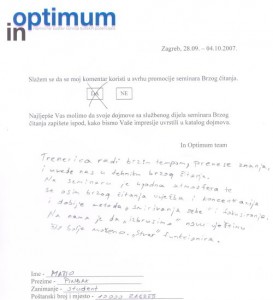 optimum
in
Zagreb, 28.09. – 04.10.2007.
Slažem se da se moj komentar koristi u svrhu promocije seminara Brzog čitanja.
DA NE
Najljepše Vas molimo da svoje dojmove sa službenog dijela seminara Brzog
čitanja zapišete ispod, kako bismo Vaše impresije uvrstili u katalog dojmova.
In Optimum team
Trenerica radi brzim tempom, prenose znanje,
i uvede nas u tehniku brzog čitanja.
Na seminaru je ugodna atmosfera te
se osim brzog čitanja vježba i koncentracija
i dobije metoda "smirivanja sebe" i
Na nama je da "izbrusimo" novu vještinu
što bolje možemo. "Stvar" funkcionira.
Ime - MARKO
Prezime -
Zanimanje - STUDENT
Poštanski broj i mjesto - 10000 ZAGREB